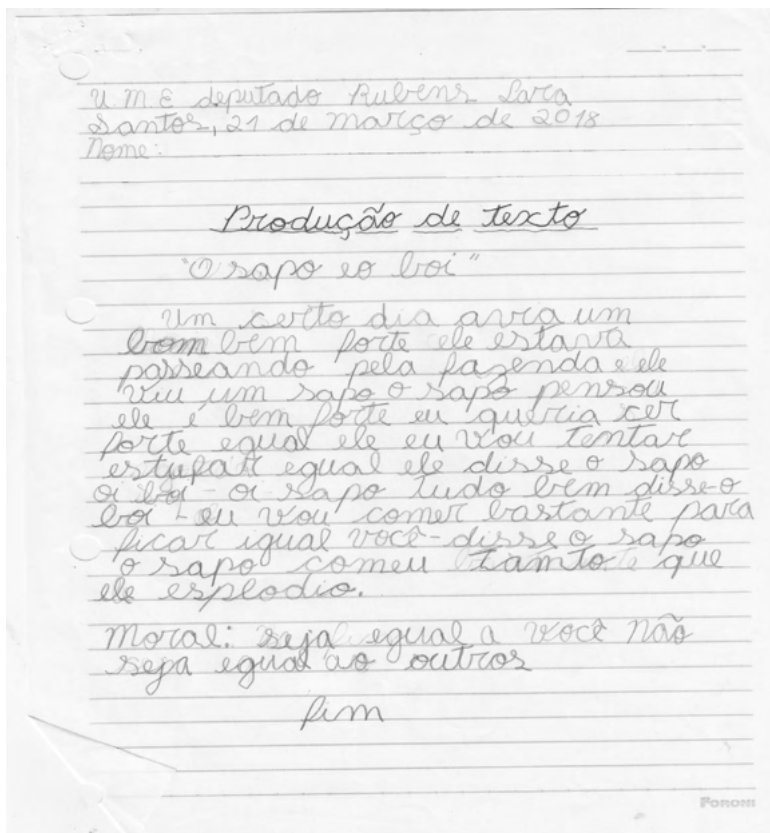 U.M.E deputado Rubens Lara
Santos, 21 de março de 2018
Nome:
Produção de texto
"O sapo eo boi"
Um certo dia avia um
bem forte ele estava
passeando pela fazenda e ele
viu um sapo o sapo pensou
ele é bem forte eu queria cer
forte egual ele eu vou tentar
estufar egual ele disse o sapo
oi boi - oi sapo tudo bem disse o
boi - eu vou comer bastante para
ficar igual você - disse o sapo
o sapo comeu tamto que
ele esplodio.
Moral: seja egual a você não
seja egual ao outros
fim